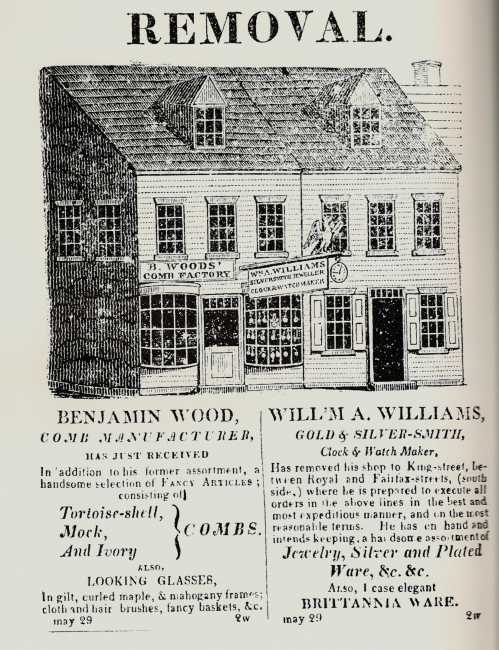 REMOVAL.
B. WOODS'
COMB FACTORY
Wm A. WILLIAMS
SILVERSMITH JEWELLER
CLOCK & WATCH MAKER
BENJAMIN WOOD,
COMB MANUFACTURER,
HAS JUST RECEIVED
In addition to his former assortment, a
handsome selection of FANCY ARTICLES;
consisting of
Tortoise-shell,
Mock,
And Ivory
COMBS.
ALSO,
LOOKING GLASSES,
In gilt, curled maple, & mahogany frames;
cloth and hair brushes, fancy baskets, &c.
may 29 2w
WILL'M A. WILLIAMS,
GOLD & SILVER-SMITH,
Clock & Watch Maker,
Has removed his shop to King-street, be-
tween Royal and Fairfax-streets, (south
side,) where he is prepared to execute all
orders in the above lines in the best and
most expeditious manner, and on the most
reasonable terms. He has on hand and
intends keeping, a handsome assortment of
Jewelry, Silver and Plated
Ware, &c. &c.
ALSO, 1 case elegant
BRITTANNIA WARE.
may 29 2w